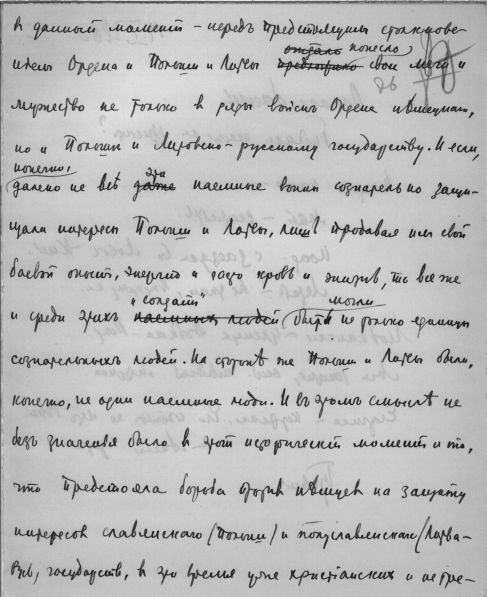 в данный момент – передъ предстоящимъ столкнове-
отдало понесло
Ордена и Польши и Литвы предложило свои мечи и
86
мужество не только в ряды войскъ Ордена нѣмецкаго,
но и Польши и Литовско-русскому государству. И если,
конечно, эти
далеко не всѣ даже наемные воины сознательно защи-
щали интересы Польши и Литвы, лишь продавая им свой
боевой опытъ, энергию и кровь и жизнь, то все же
"солдатъ" могли
и среди этихъ наемныхъ людей быть не только единицы
сознательныхъ людей. На сторонѣ же Польши и Литвы были,
конечно, не одни наемные люди. И въ этомъ смыслѣ не
безъ значения было в этот исторический моментъ и то,
что предстояла борьба противъ нѣмцев на защиту
интересов славянскаго (Польши) и полуславянскаго (Литва-
Русь) государств, в это время уже христианских и не тре-